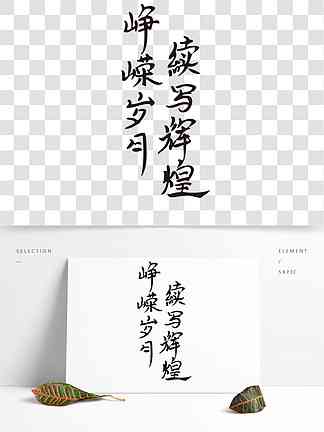 峥嵘岁月
續写辉煌
SELECTION
ELEMENT
/
峥嵘岁月
續写辉煌